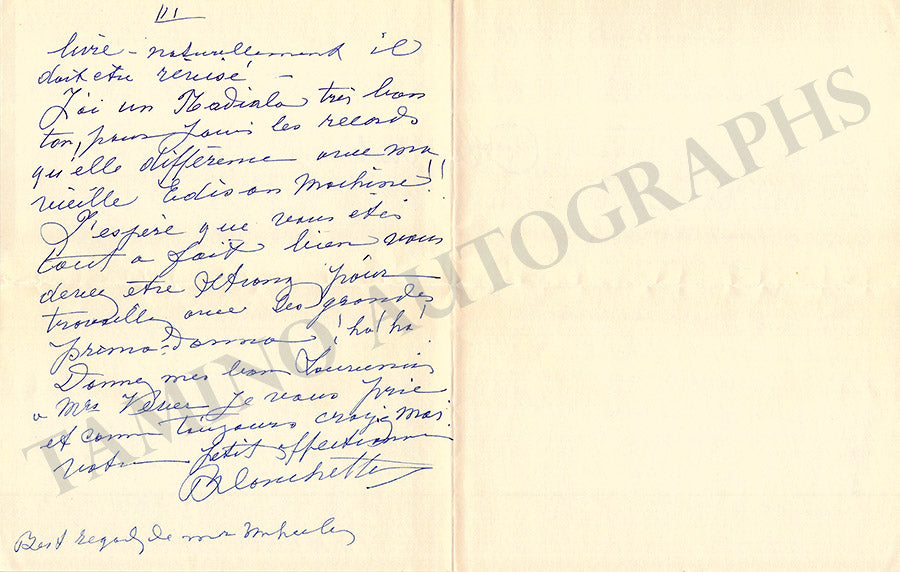 III
livre - naturellement il
doit etre révisé -
J'ai un Radiola très bon
ton, pour jouir les records
qu'elle différence avec ma
vieille Edison Machine!!
J'espère que vous etes
tout a fait bien vous
devez être Strong pour
travailler avec les grandes
prima-Donna! ha! ha!
Donnez mes bon Souvenirs
a Mrs je vous prie
et comme toujours croyez moi
votre petit affectionné
Blanchette
Best regards de mr Wheeler
TAMINO AUTOGRAPHS